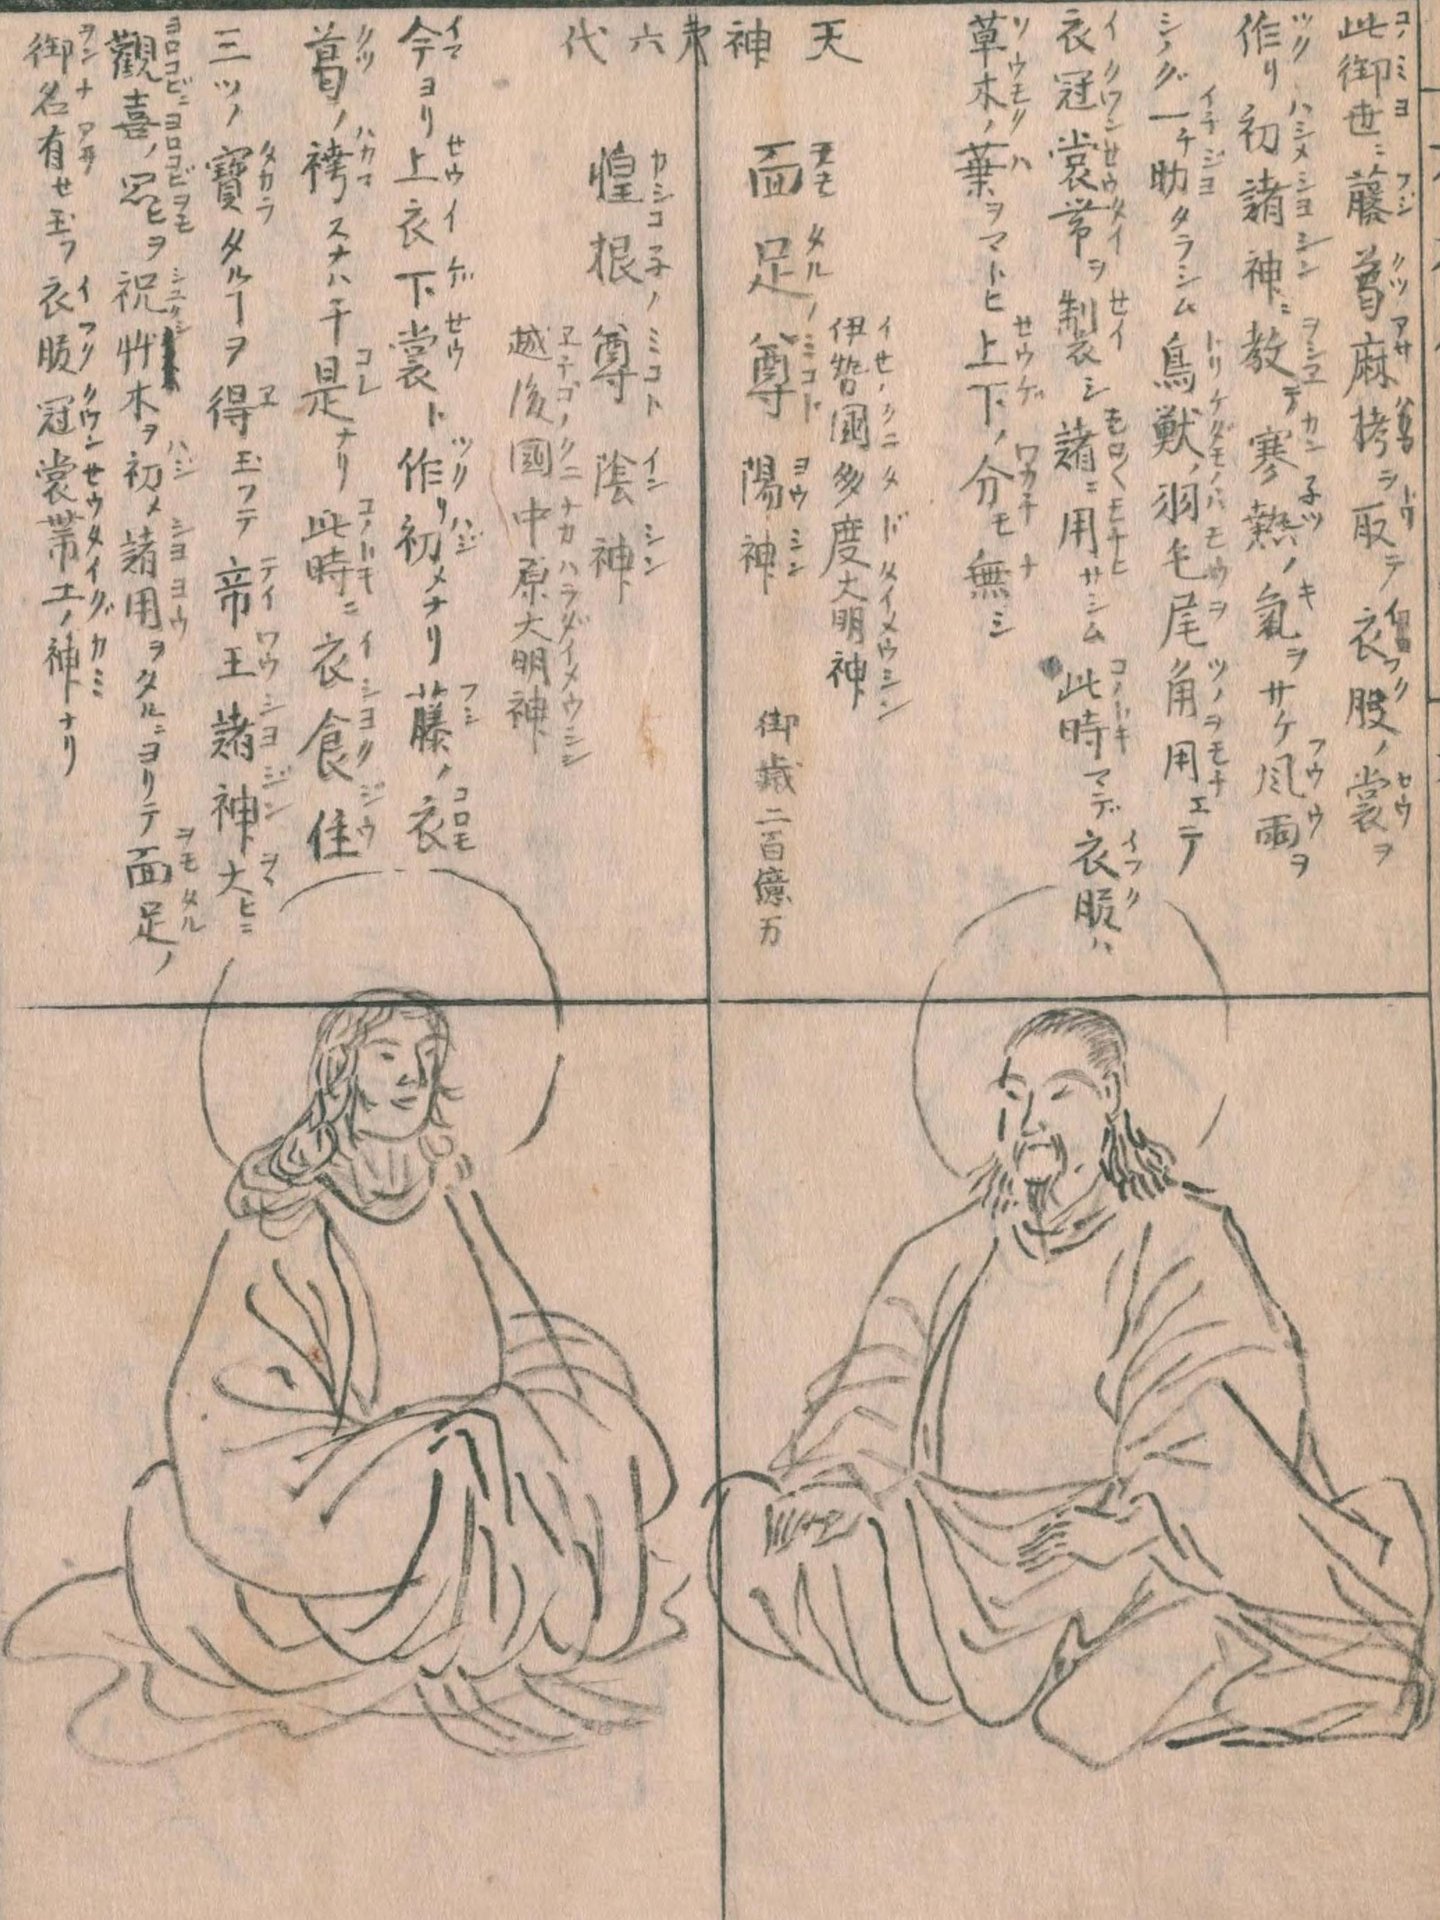 此御世ニ藤葛麻栲ヲ取テ衣服ノ裳ヲ
作リ初諸神ニ教テ寒熱ノ氣ヲサケ風雨ヲ
シノグ一チ助タラシム鳥獣ノ羽毛尾角用エテ
衣冠裳帯ヲ製シ諸ニ用サシム此時マデ衣服ハ
草木ノ葉ヲマトヒ上下ノ分モ無シ
天神第六代
伊勢國多度大明神
面足尊 陽神 御歳二百億万
惶根尊 陰神
越後國中原大明神
今ヨリ上衣下裳ト作リ初メナリ藤ノ衣
葛ノ袴スナハチ是ナリ此時ニ衣食住
三ツノ寶タルヿヲ得玉フテ帝王諸神大ヒニ
觀喜ノ思ヒヲ祝艸木ヲ初メ諸用ヲタルニヨリテ面足ノ
御名有セ玉フ衣服冠裳帯エノ神ナリ